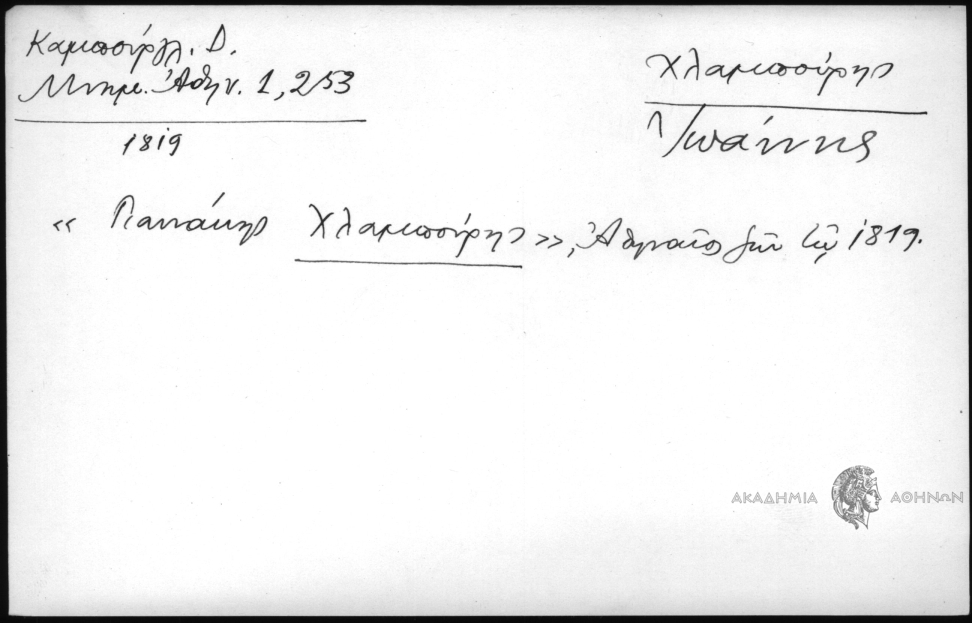 Καμπούρογλ. Δ.
Μνημ. Ἀθην. 1, 253
1819
Χλαμπούρης
Ἰωάννης
« Γιαννάκης Χλαμπούρης », Ἀθηναῖος ζῶν τῷ 1819.
ΑΚΑΔΗΜΙΑ ΑΘΗΝΩΝ